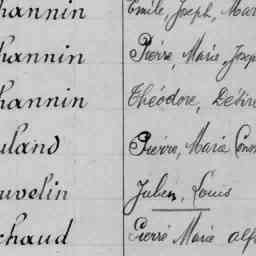 hannin Emile, Joseph, Mar
hannin Pierre, Marie, Josep
hannin Théodore, Désiré
uland Pierre, Marie
uvelin Julien, Louis
chaud Pierre Marie alf